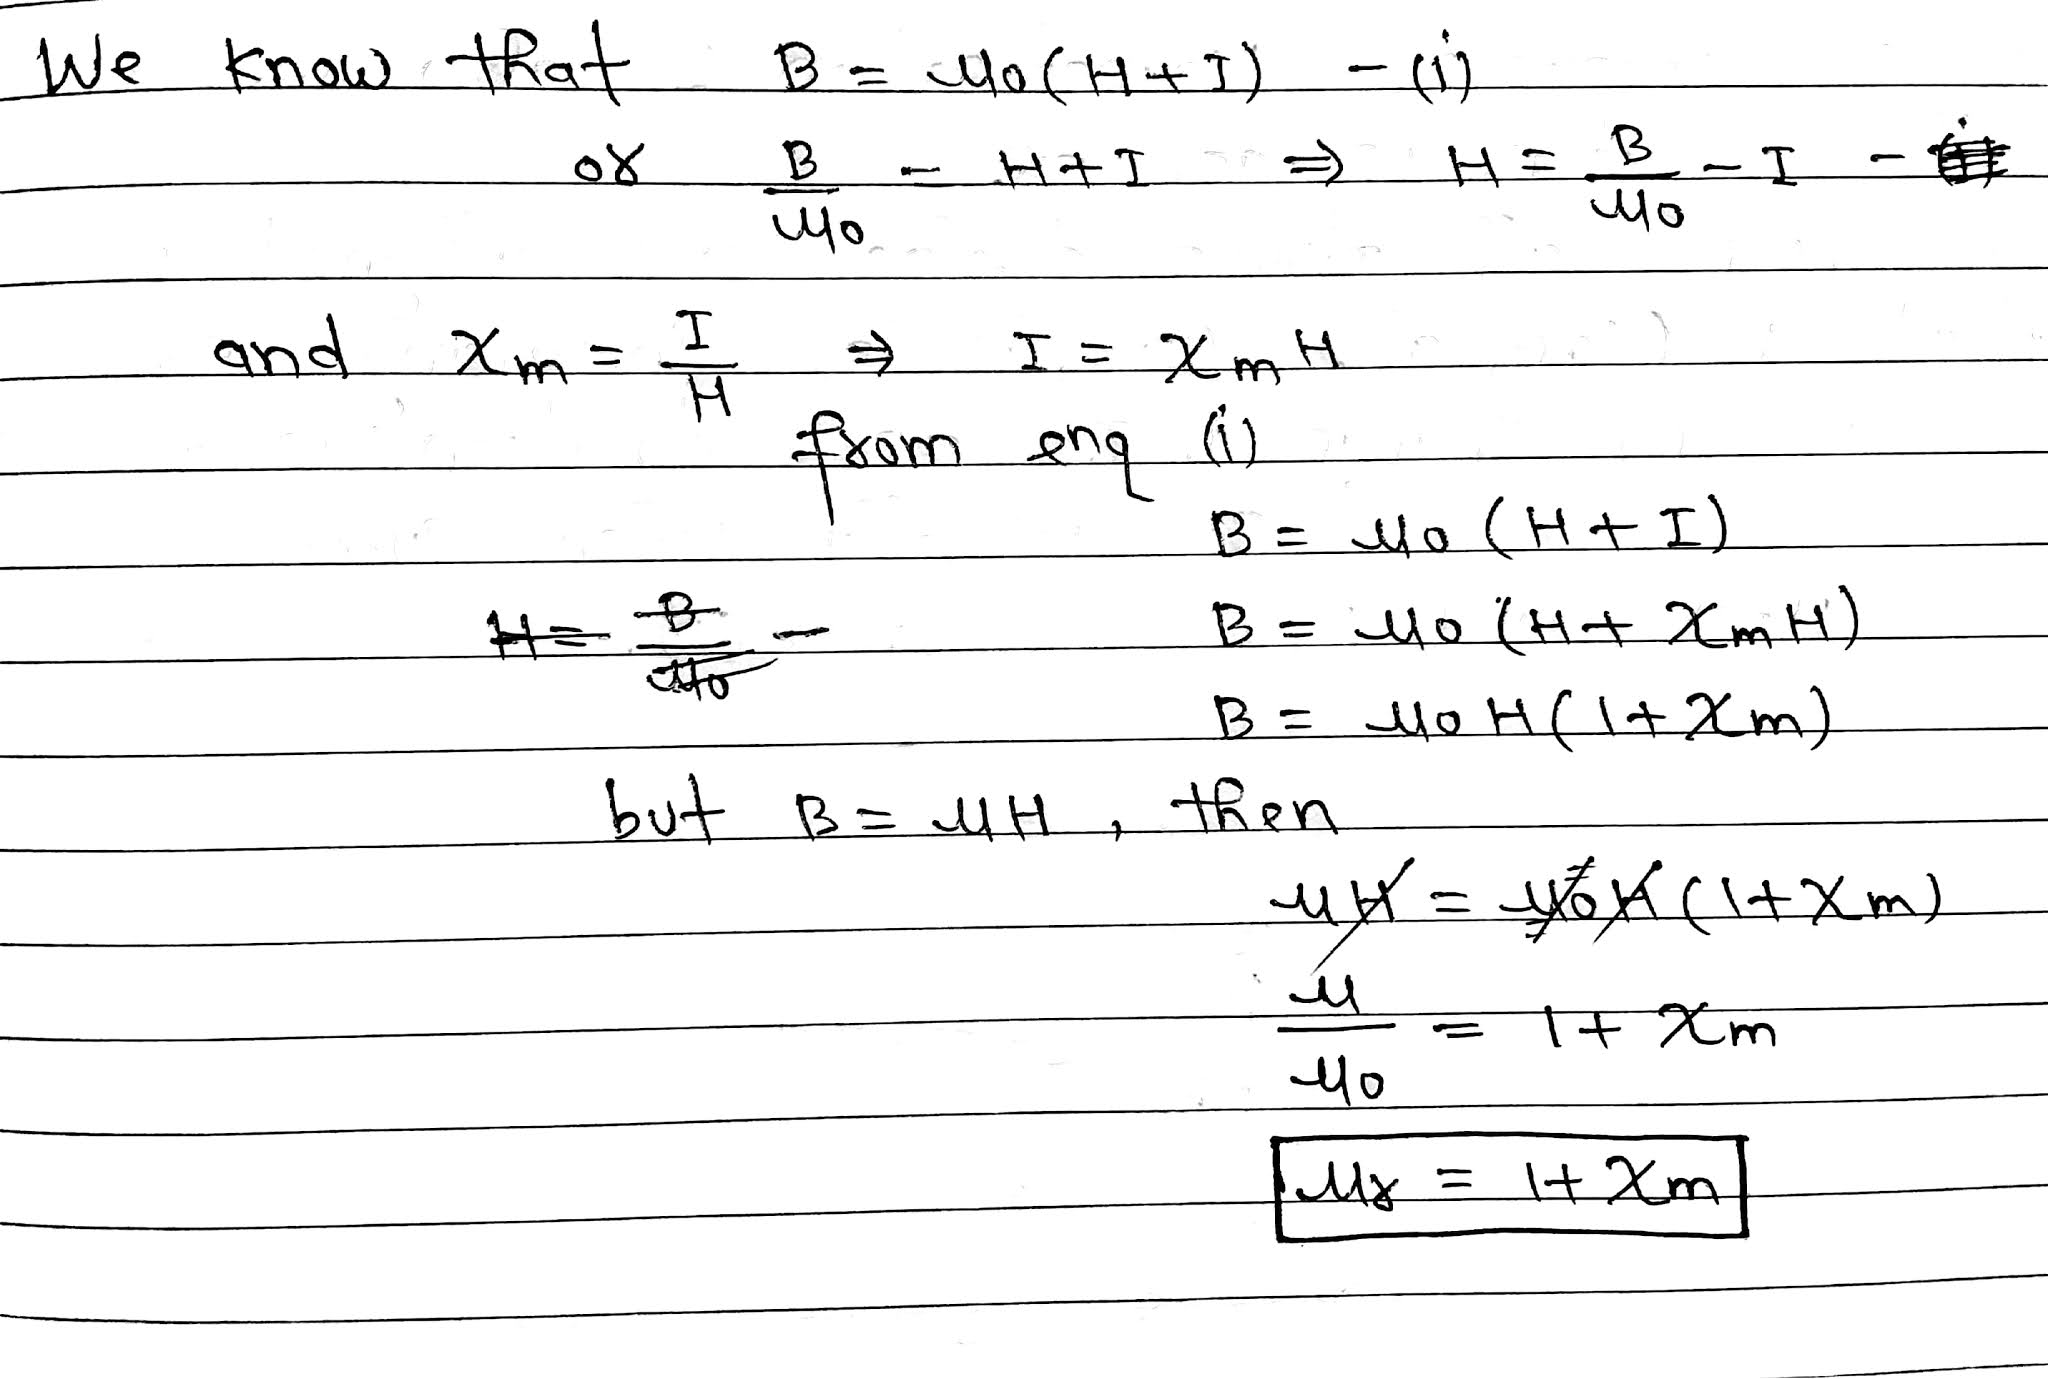 We know that B = μ0(H+I) - (i)
or B/μ0 - H+I ⇒ H = B/μ0 - I -
and χm = I/H ⇒ I = χm H
from enq (i)
B = μ0 (H + I)
H = B/μ0 - B = μ0 (H + χm H)
B = μ0 H(1+ χm)
but B = μH, then
μH = μ0H (1+χm)
μ/μ0 = 1+ χm
μr = 1+ χm